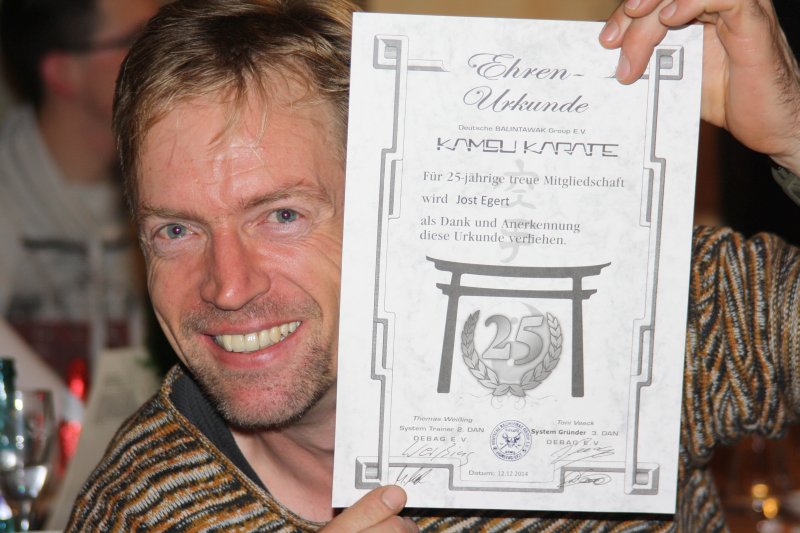 Ehren-
Urkunde
Deutsche BALINTAWAK Group E.V.
KAMSU KARATE
Für 25-jährige treue Mitgliedschaft
wird Jost Egert
als Dank und Anerkennung
diese Urkunde verliehen.
25
Thomas Weißing Toni Vaeck
System Trainer 2. DAN System Gründer 3. DAN
DEBAG E.V. DEBAG E.V.
Datum: 12.12.2014